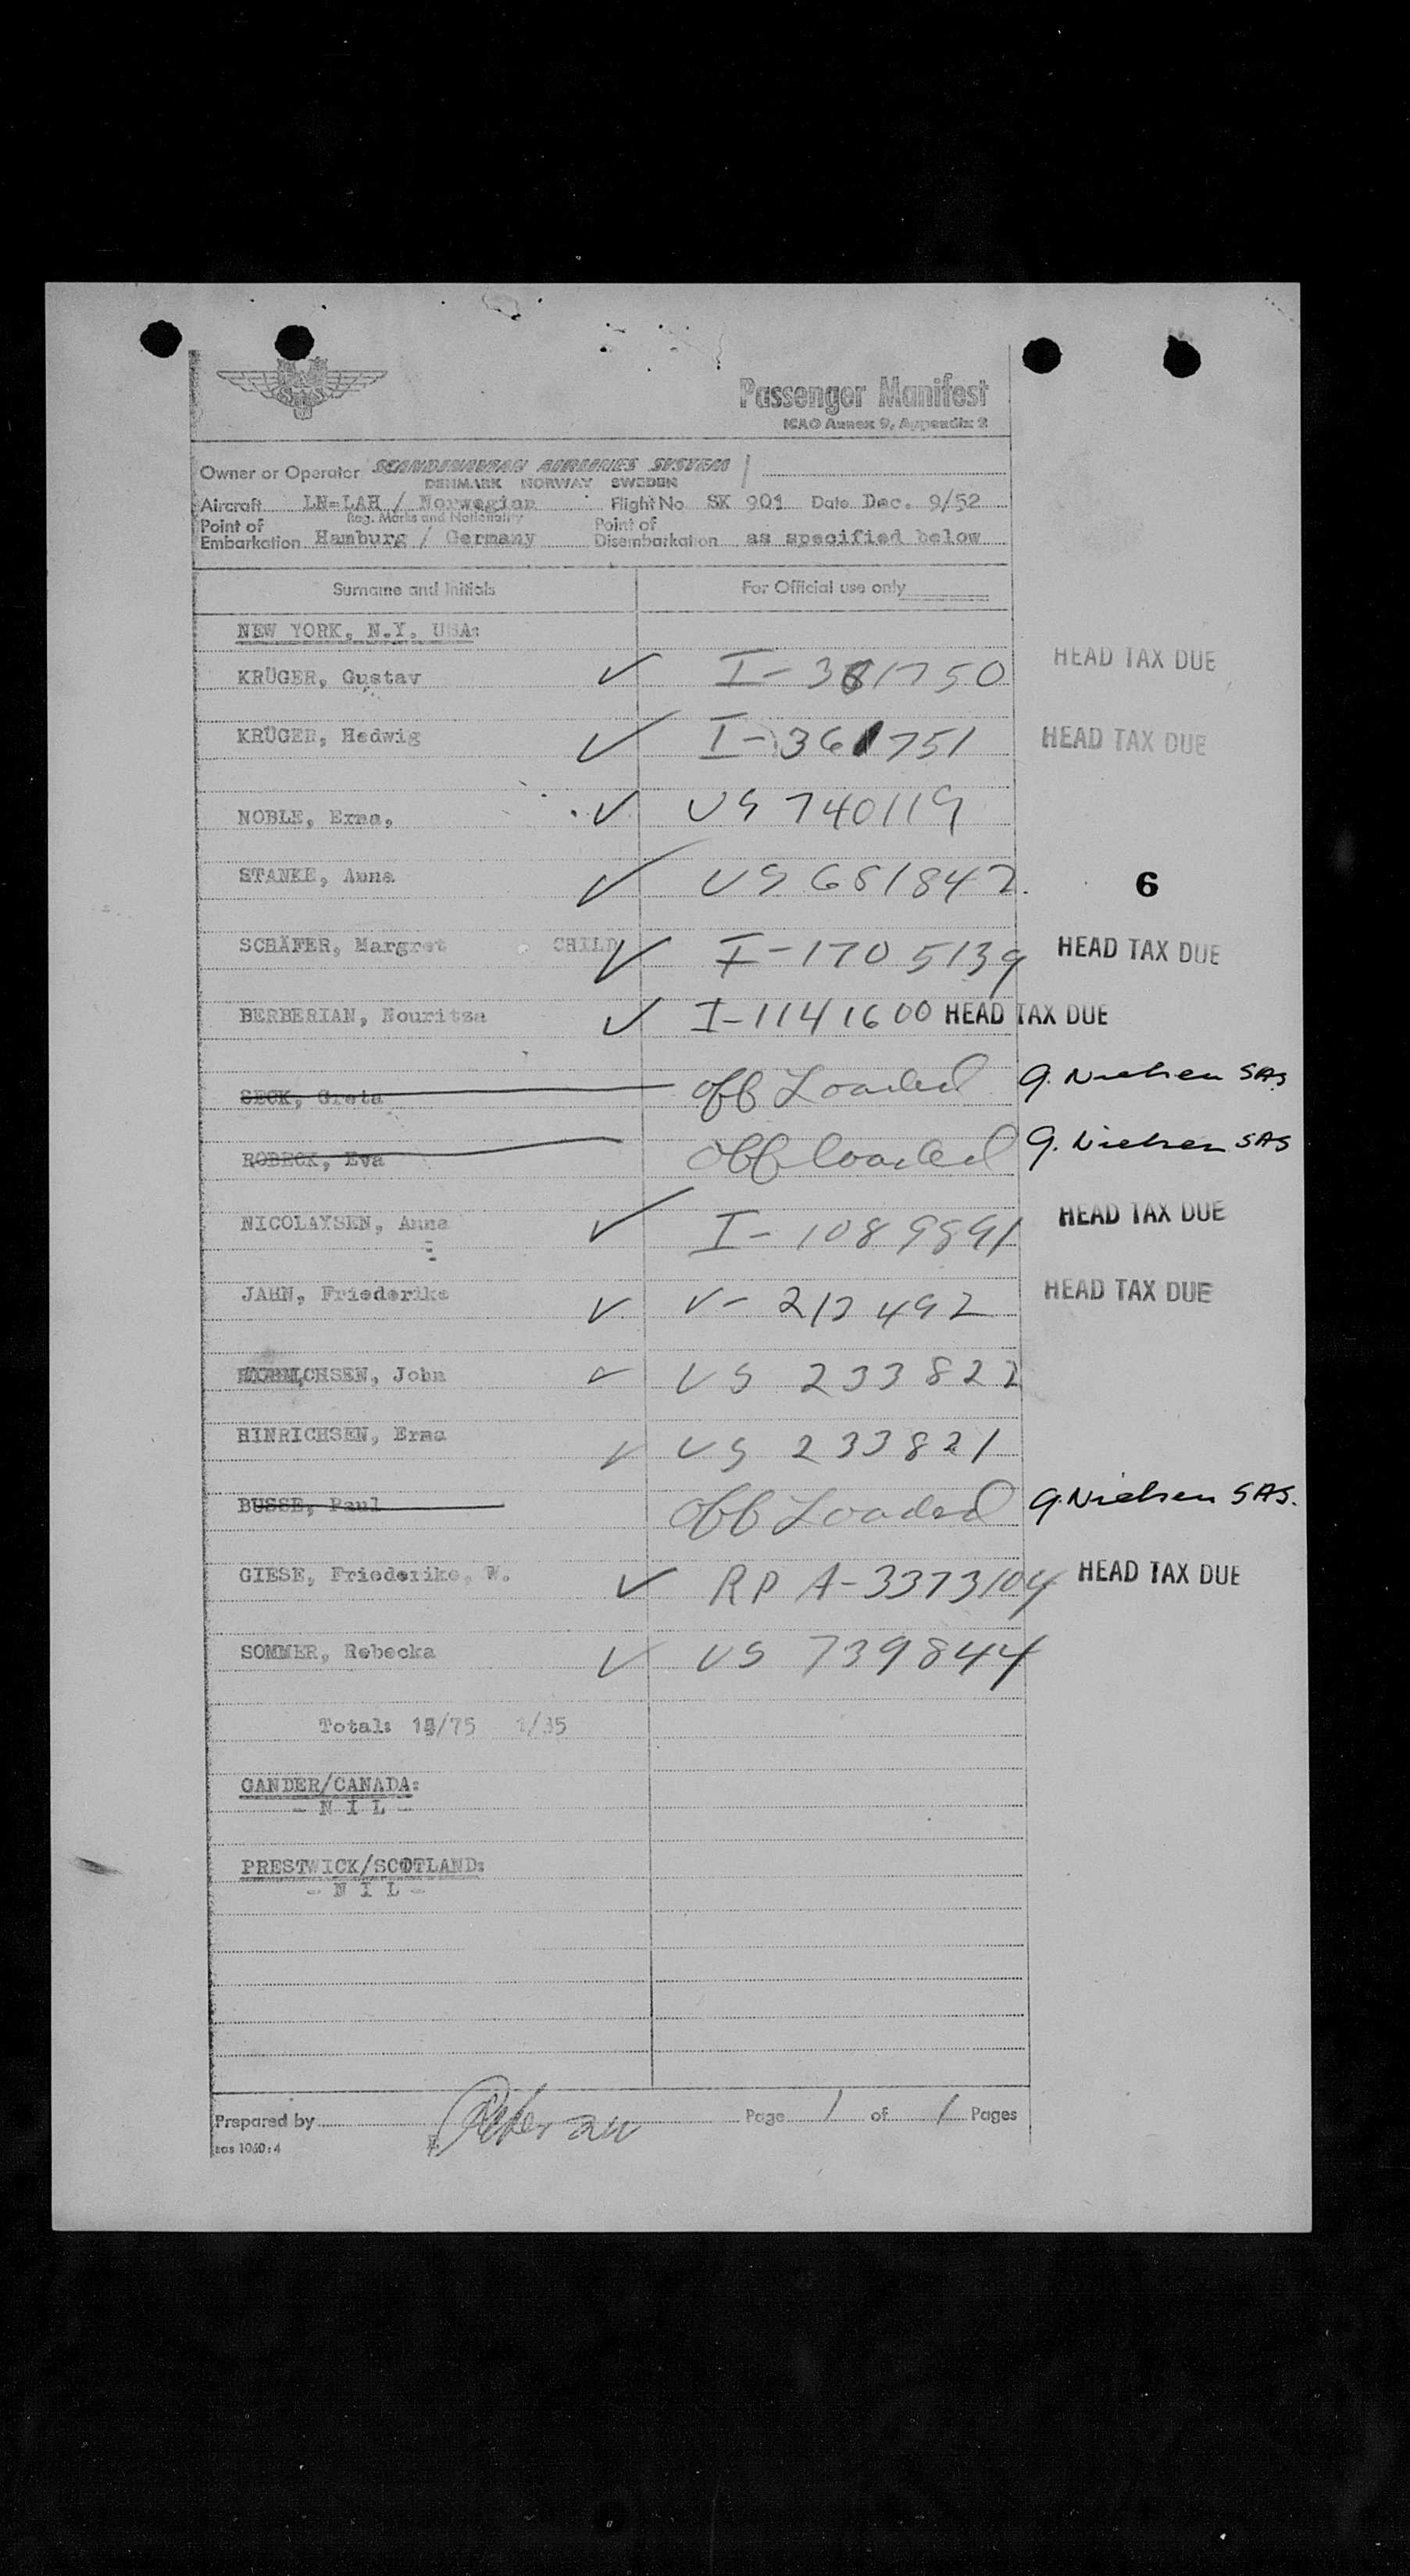 Passenger Manifest
ICAO Annex 9, Appendix 2
Owner or Operator SCANDINAVIAN AIRLINES SYSTEM
DENMARK NORWAY SWEDEN
Aircraft LN-LAH / Norwegian Flight No SK 901 Date Dec. 9/52
Reg. Marks and Nationality
Point of Embarkation Hamburg / Germany Point of Disembarkation as specified below
Surname and Initials For Official use only
NEW YORK, N.Y. USA:
KRÜGER, Gustav ✓ I-361750 HEAD TAX DUE
KRÜGER, Hedwig ✓ I-361751 HEAD TAX DUE
NOBLE, Erna, ✓ US 740119
STANKE, Anna ✓ US 681842 6
SCHÄFER, Margret CHILD ✓ I-1705139 HEAD TAX DUE
BERBERIAN, Nouritza ✓ I-1141600 HEAD TAX DUE
SECK, Greta Off Loaded G. Nielsen SAS
ROBECK, Eva Off loaded G. Nielsen SAS
NICOLAYSEN, Anna ✓ I-1089891 HEAD TAX DUE
JAHN, Friederike ✓ V-212492 HEAD TAX DUE
CHSEN, John ✓ US 233822
HINRICHSEN, Erna ✓ US 233821
BUSSE, Paul Off Loaded G. Nielsen SAS.
GIESE, Friederike, W. ✓ RP A-3373104 HEAD TAX DUE
SOMMER, Rebecka ✓ US 739844
Total: /75 1/35
GANDER/CANADA:
- N I L -
PRESTWICK/SCOTLAND:
- N I L -
Prepared by Page 1 of 1 Pages
sas 1060:4